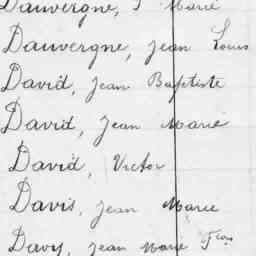 Dauvergne, J Marie
Dauvergne, Jean Louis
David, Jean Baptiste
David, Jean Marie
David, Victor
Davis, Jean Marie
Davy, Jean Marie Fçois